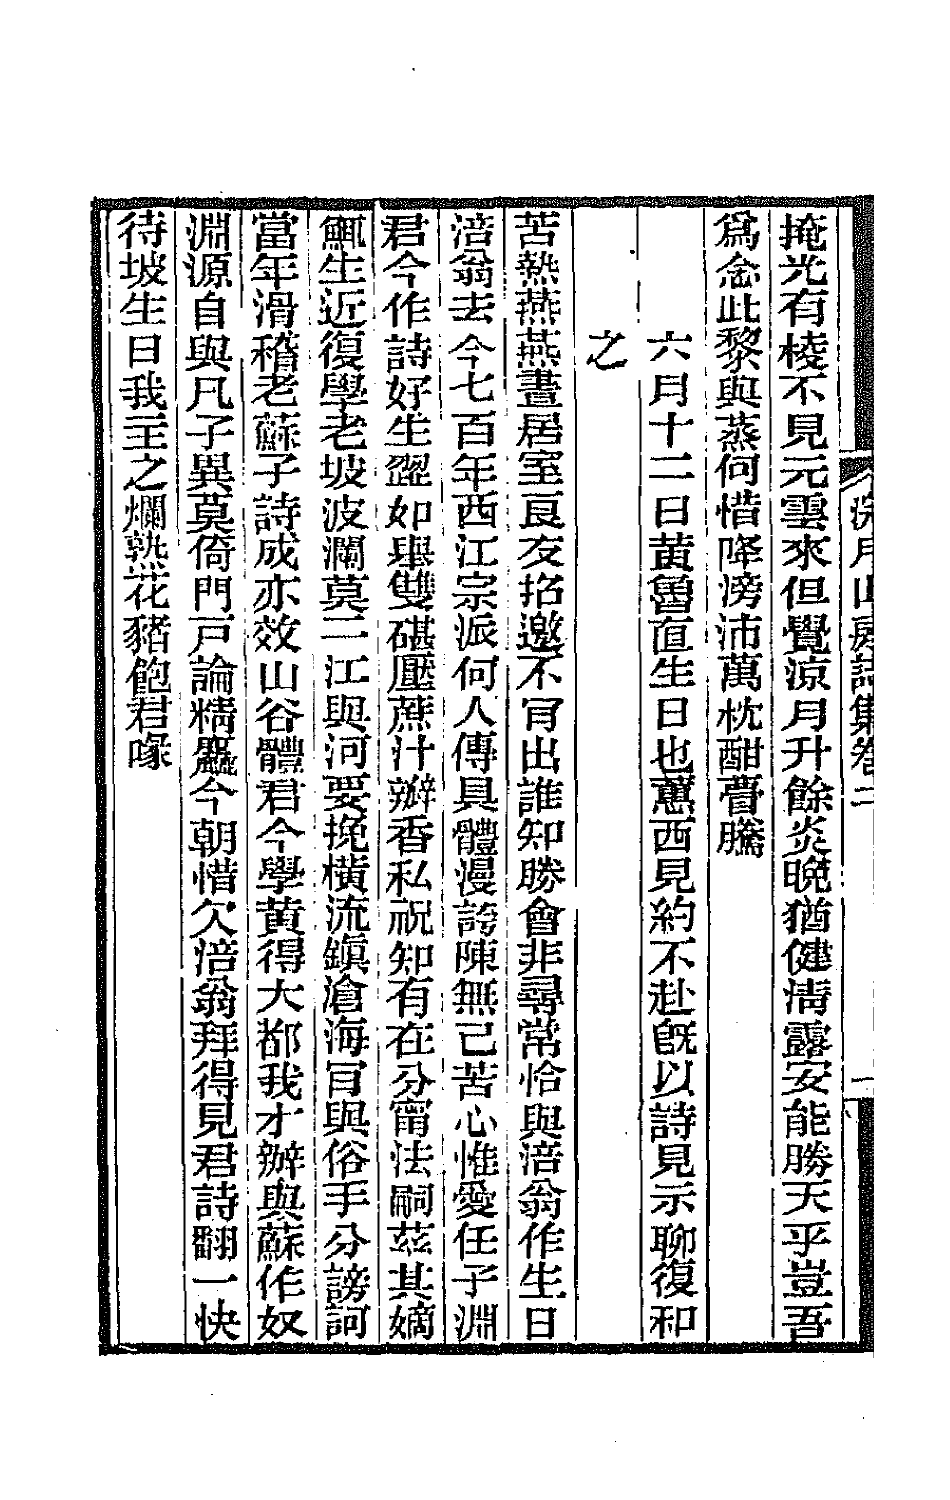 掩光有棱不見元雲來但覺涼月升餘炎晚猶健淸露安能勝天乎豈吾
爲念此黎與蒸何惜降滂沛萬枕酣瞢騰
六月十二日黃魯直生日也蕙西見約不赴旣以詩見示聊復和
之
苦熱燕燕晝居室良友招邀不肎出誰知勝會非尋常恰與涪翁作生日
涪翁去今七百年西江宗派何人傳具體漫誇陳無己苦心惟愛任子淵
君今作詩好生澀如舉雙碪壓蔗汁瓣香私祝知有在分甯法嗣茲其嫡
鯫生近復學老坡波瀾莫二江與河要挽橫流鎭滄海肎與俗手分謗訶
當年滑稽老蘇子詩成亦效山谷體君今學黃得大都我才辦與蘇作奴
淵源自與凡子異莫倚門戸論精麤今朝惜欠涪翁拜得見君詩翻一快
待坡生日我主之爛熟花豬飽君喙
月山房詩集卷二